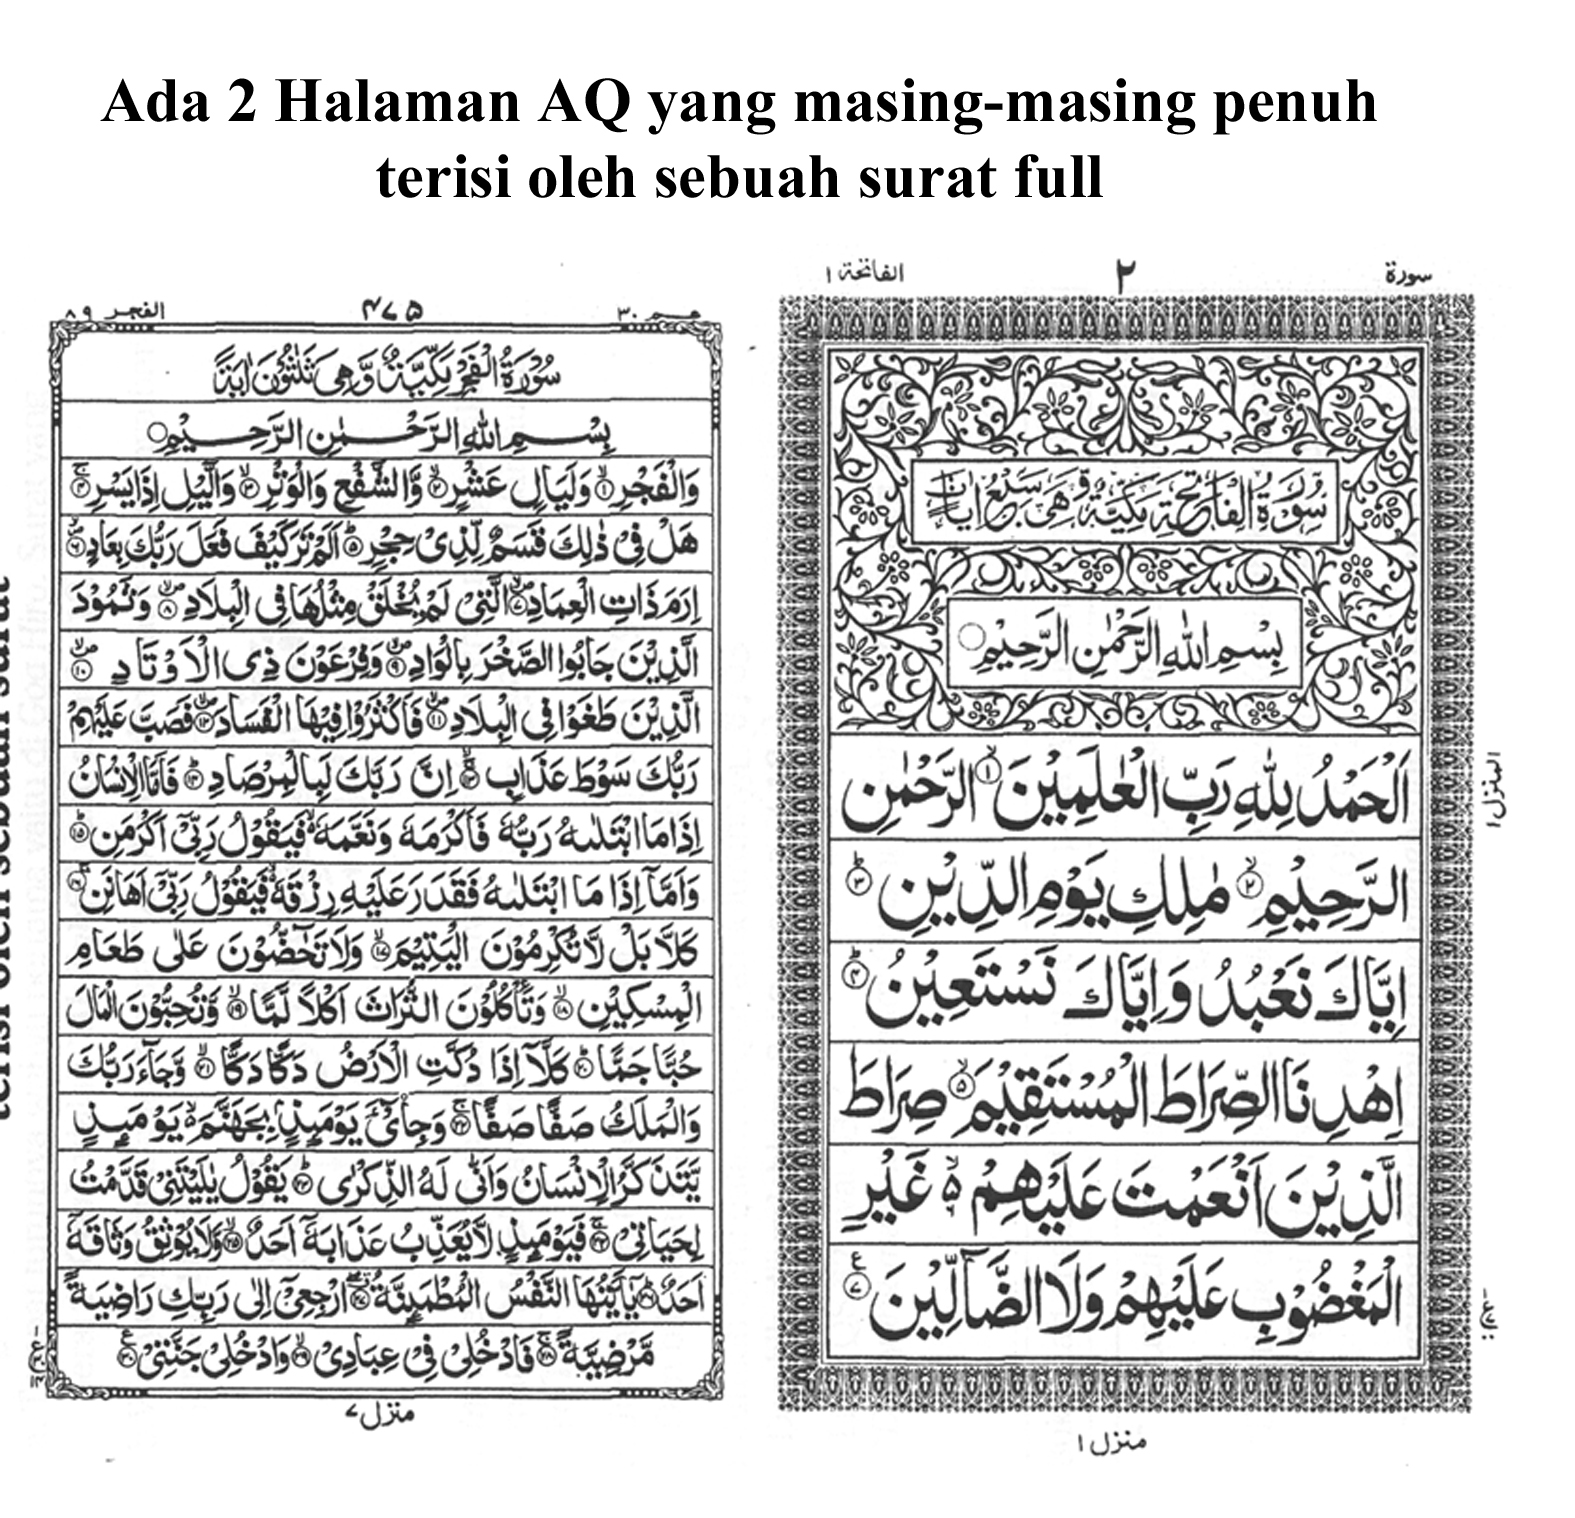 Ada 2 Halaman AQ yang masing-masing penuh
terisi oleh sebuah surat full
سورة ٢ الفاتحة ١
سُوْرَةُ الْفَاتِحَةِ مَكِّيَّةٌ وَّهِيَ سَبْعُ اٰيَاتٍ
بِسْمِ اللّٰهِ الرَّحْمٰنِ الرَّحِيْمِ ○
اَلْحَمْدُ لِلّٰهِ رَبِّ الْعٰلَمِيْنَ ۙ﴿١﴾ الرَّحْمٰنِ
الرَّحِيْمِ ۙ﴿٢﴾ مٰلِكِ يَوْمِ الدِّيْنِ ؕ﴿٣﴾
اِيَّاكَ نَعْبُدُ وَاِيَّاكَ نَسْتَعِيْنُ ؕ﴿۴﴾
اِهْدِنَا الصِّرَاطَ الْمُسْتَقِيْمَ ۙ﴿۵﴾ صِرَاطَ
الَّذِيْنَ اَنْعَمْتَ عَلَيْهِمْ ۙ۬ غَيْرِ
الْمَغْضُوْبِ عَلَيْهِمْ وَلَا الضَّآلِّيْنَ ﴿٧﴾ ع
المنزل ١
منزل ١
عـم ٣٠ ۴٧۵ الفجر ٨٩
سُوْرَةُ الْفَجْرِ مَكِّيَّةٌ وَّهِيَ ثَلٰثُوْنَ اٰيَةً
بِسْمِ اللّٰهِ الرَّحْمٰنِ الرَّحِيْمِ ○
وَالْفَجْرِ ۙ﴿١﴾ وَلَيَالٍ عَشْرٍ ۙ﴿٢﴾ وَّالشَّفْعِ وَالْوَتْرِ ۙ﴿٣﴾ وَالَّيْلِ اِذَا يَسْرِ ۚ﴿۴﴾
هَلْ فِيْ ذٰلِكَ قَسَمٌ لِّذِيْ حِجْرٍ ؕ﴿۵﴾ اَلَمْ تَرَ كَيْفَ فَعَلَ رَبُّكَ بِعَادٍ ﴿۶﴾
اِرَمَ ذَاتِ الْعِمَادِ ﴿٧﴾ الَّتِيْ لَمْ يُخْلَقْ مِثْلُهَا فِي الْبِلَادِ ﴿٨﴾ وَثَمُوْدَ
الَّذِيْنَ جَابُوا الصَّخْرَ بِالْوَادِ ﴿٩﴾ وَفِرْعَوْنَ ذِي الْاَوْتَادِ ﴿١٠﴾
الَّذِيْنَ طَغَوْا فِي الْبِلَادِ ﴿١١﴾ فَاَكْثَرُوْا فِيْهَا الْفَسَادَ ﴿١٢﴾ فَصَبَّ عَلَيْهِمْ
رَبُّكَ سَوْطَ عَذَابٍ ﴿١٣﴾ اِنَّ رَبَّكَ لَبِالْمِرْصَادِ ؕ﴿١۴﴾ فَاَمَّا الْاِنْسَانُ
اِذَا مَا ابْتَلٰىهُ رَبُّهٗ فَاَكْرَمَهٗ وَنَعَّمَهٗ ۬ۙ فَيَقُوْلُ رَبِّيْٓ اَكْرَمَنِ ؕ﴿١۵﴾
وَاَمَّآ اِذَا مَا ابْتَلٰىهُ فَقَدَرَ عَلَيْهِ رِزْقَهٗ ۬ۙ فَيَقُوْلُ رَبِّيْٓ اَهَانَنِ ۚ﴿١۶﴾
كَلَّا بَلْ لَّا تُكْرِمُوْنَ الْيَتِيْمَ ۙ﴿١٧﴾ وَلَا تَحٰٓضُّوْنَ عَلٰى طَعَامِ
الْمِسْكِيْنِ ۙ﴿١٨﴾ وَتَاْكُلُوْنَ التُّرَاثَ اَكْلًا لَّمًّا ۙ﴿١٩﴾ وَّتُحِبُّوْنَ الْمَالَ
حُبًّا جَمًّا ؕ﴿٢٠﴾ كَلَّآ اِذَا دُكَّتِ الْاَرْضُ دَكًّا دَكًّا ۙ﴿٢١﴾ وَّجَآءَ رَبُّكَ
وَالْمَلَكُ صَفًّا صَفًّا ۚ﴿٢٢﴾ وَجِايْٓءَ يَوْمَئِذٍۭ بِجَهَنَّمَ ۬ۙ يَوْمَئِذٍ
يَّتَذَكَّرُ الْاِنْسَانُ وَاَنّٰى لَهُ الذِّكْرٰى ؕ﴿٢٣﴾ يَقُوْلُ يٰلَيْتَنِيْ قَدَّمْتُ
لِحَيَاتِيْ ۚ﴿٢۴﴾ فَيَوْمَئِذٍ لَّا يُعَذِّبُ عَذَابَهٗٓ اَحَدٌ ۙ﴿٢۵﴾ وَّلَا يُوْثِقُ وَثَاقَهٗٓ
اَحَدٌ ؕ﴿٢۶﴾ يٰٓاَيَّتُهَا النَّفْسُ الْمُطْمَئِنَّةُ ﴿٢٧﴾ ارْجِعِيْٓ اِلٰى رَبِّكِ رَاضِيَةً
مَّرْضِيَّةً ۚ﴿٢٨﴾ فَادْخُلِيْ فِيْ عِبٰدِيْ ۙ﴿٢٩﴾ وَادْخُلِيْ جَنَّتِيْ ﴿٣٠﴾ ع
منزل ٧
terisi oleh sebuah surat